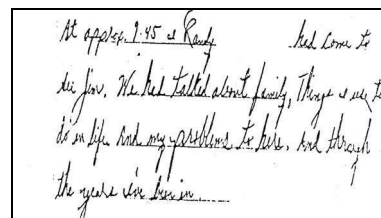 At approx. 9:45 a Randy had come to
see Jim. We had talked about family, Things I use to
do in life and my problems to here. And through
the years I've been in